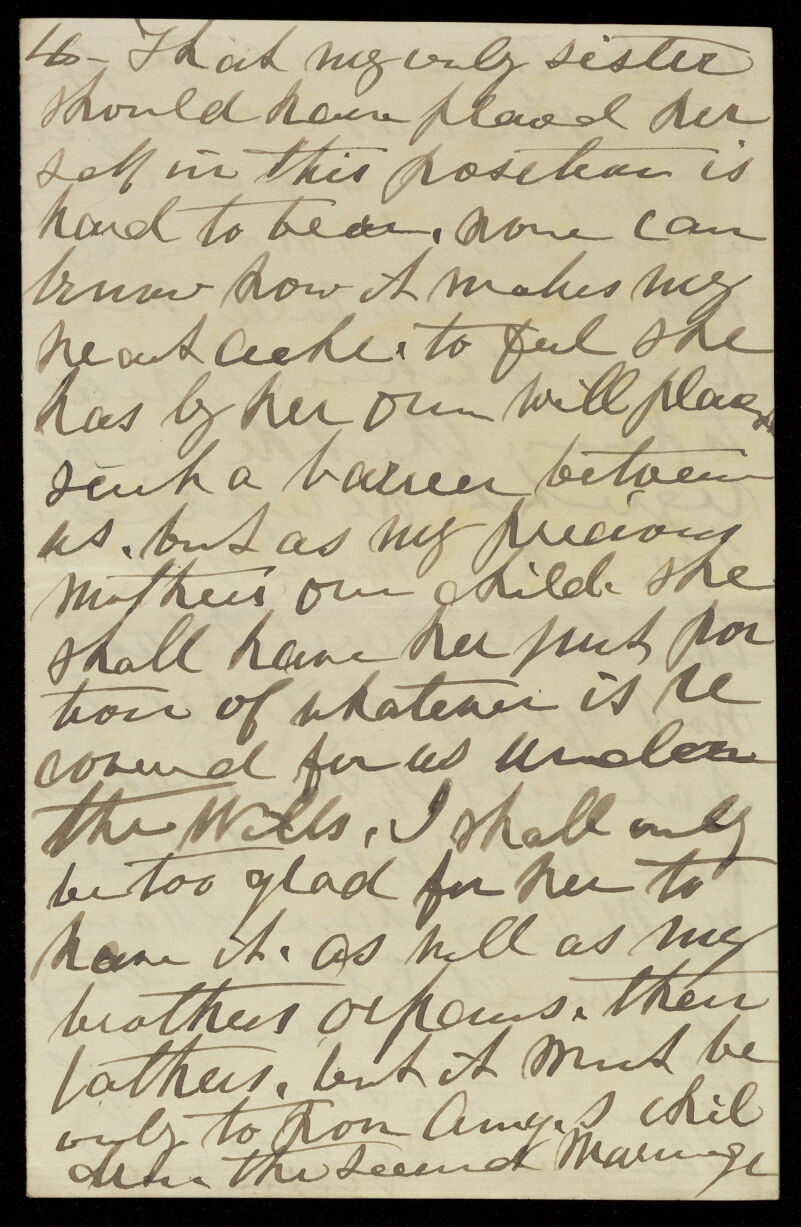 46- That my only sister
should have placed her
self in this position is
hard to bear. none can
know how it makes my
heart ache. to feel she
has by her own will placed
such a barrier between
us. but as my precious
mothers own child. she
shall have her just por
tion of whatever is re
covered for us under
the Wills. I shall only
be too glad for her to
have it. as well as my
brothers orphans. their
fathers. but it must be
only to poor Amy.s chil
dren. the second Marriage